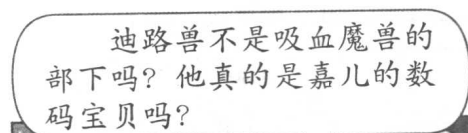 迪路兽不是吸血魔兽的
部下吗？他真的是嘉儿的数
码宝贝吗？